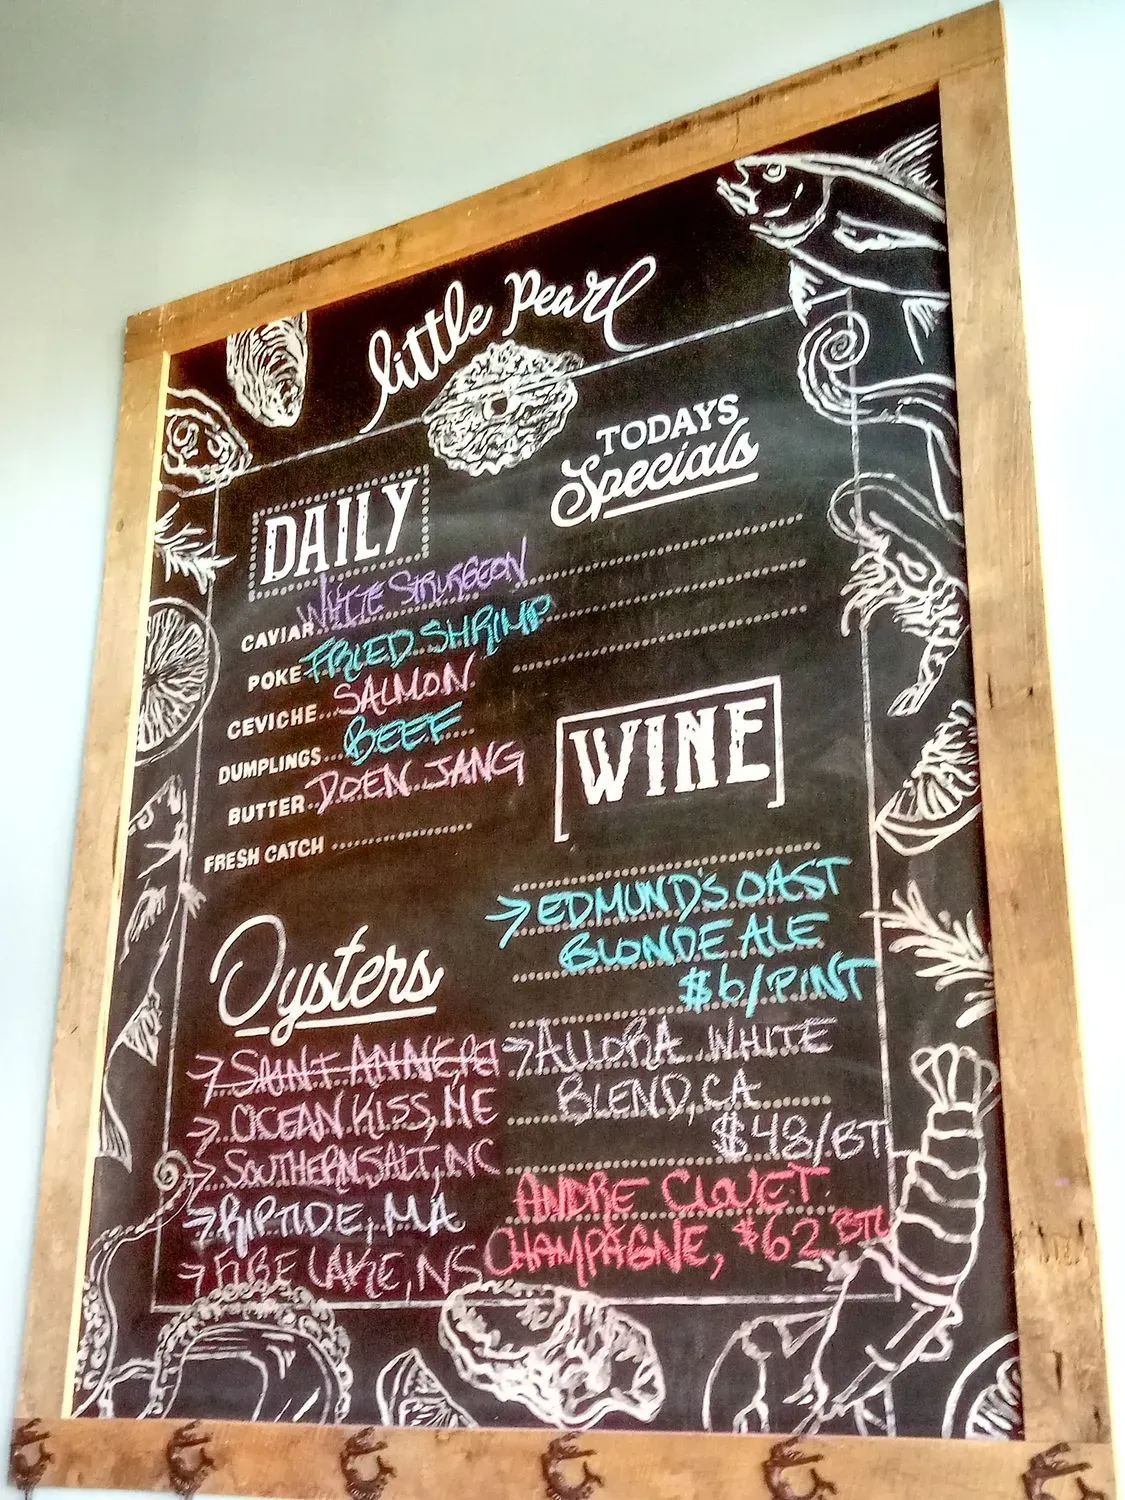 little Pearl
DAILY
CAVIAR WHITE STRURGEON
POKE FRIED SHRIMP
CEVICHE... SALMON
DUMPLINGS... BEEF
BUTTER.. DOEN JANG
FRESH CATCH
TODAYS
Specials
WINE
→ EDMUND'S OAST
BLONDE ALE
$6/PINT
→ ALLORA WHITE
BLEND, CA
$48/BTL
ANDRE CLOUET
CHAMPAGNE, $62 BTL
Oysters
→ SAINT ANNE, PEI
→ OCEAN KISS, ME
→ SOUTHERN SALT, NC
→ RIPTIDE, MA
→ LAKE, NS